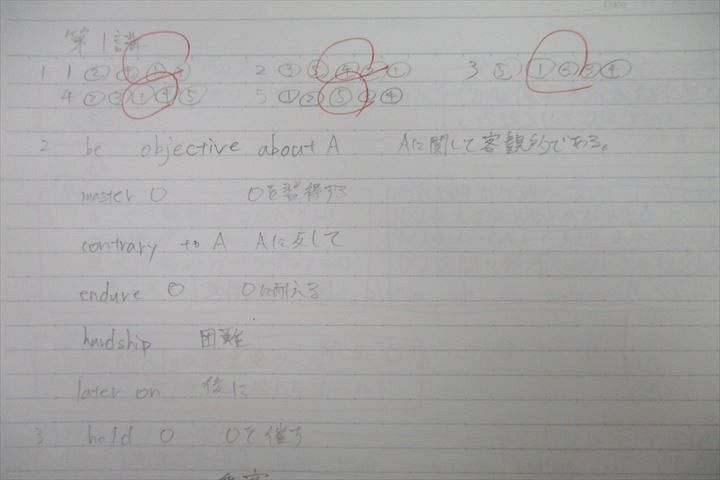 第1講
1 1 ② ① ③ 2 ③ ⑤ ④ ① 3 ⑤ ① ② ③ ④
4 ② ③ ① ④ ⑤ 5 ① ② ⑤ ④
2 be objective about A Aに関して客観的である。
master O Oを習得する
contrary to A Aに反して
endure O Oに耐える
hardship 困難
later on 後に
3 hold O Oを催す